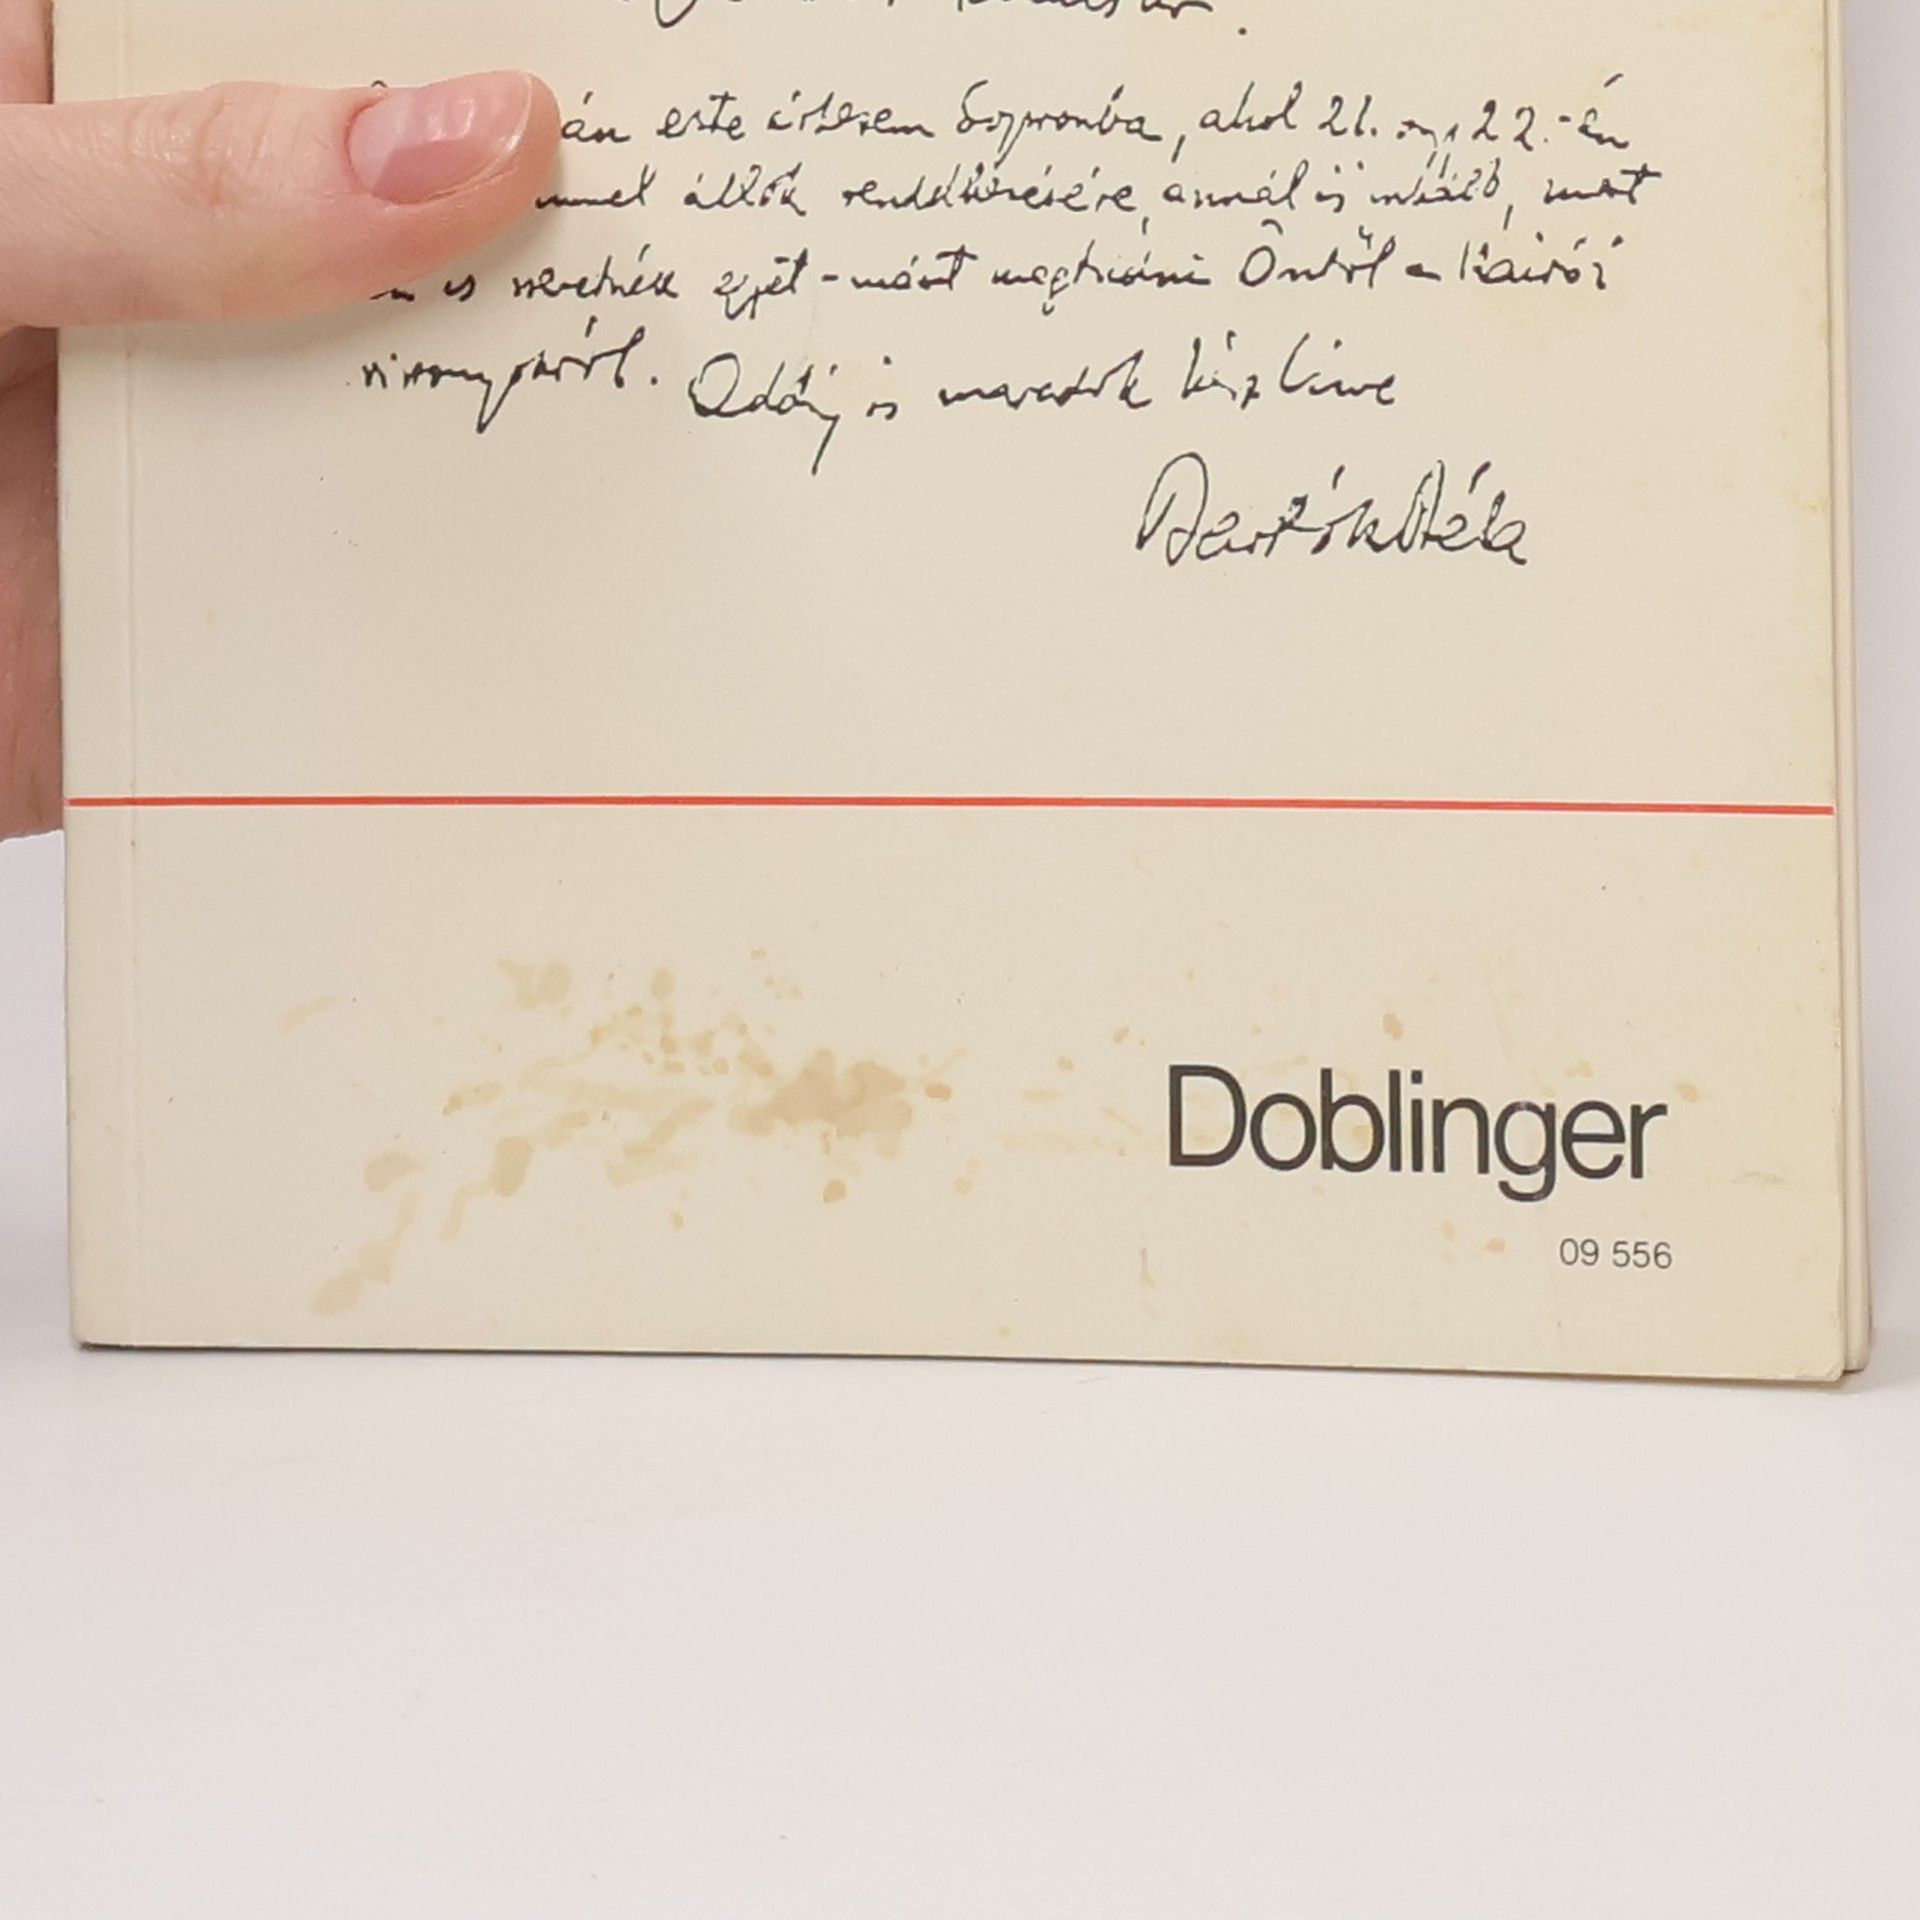 án este érkezem Sopronba, ahol 21. és 22.-én
állok rendelkezésére, annál is inkább, mert
is szeretnék egyet-mást megtudni Öntől a kairói
viszonyokról. Addig is maradok kész híve
Bartók Béla
Doblinger
09 556